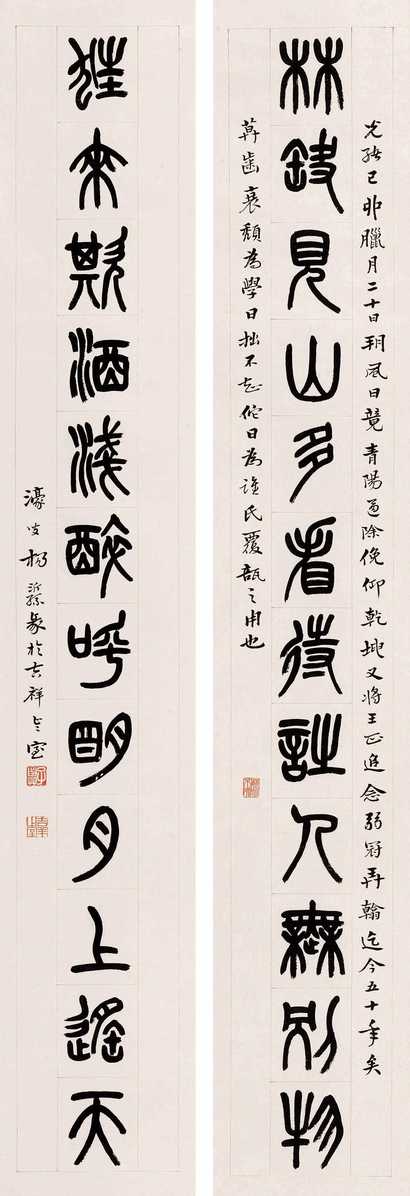 光緒己卯臘月二十日風日競青陽逼除俛仰乾坤又將王正追念弱冠弄翰迄今五十年矣
林缺見山多看待詩人無別物
莫齒衰頹為學日拙不知佗日為誰氏覆瓿之用也
狂來斟酒淺醉呼明月上遙天
濠叟楊沂孫篆於吉祥止室